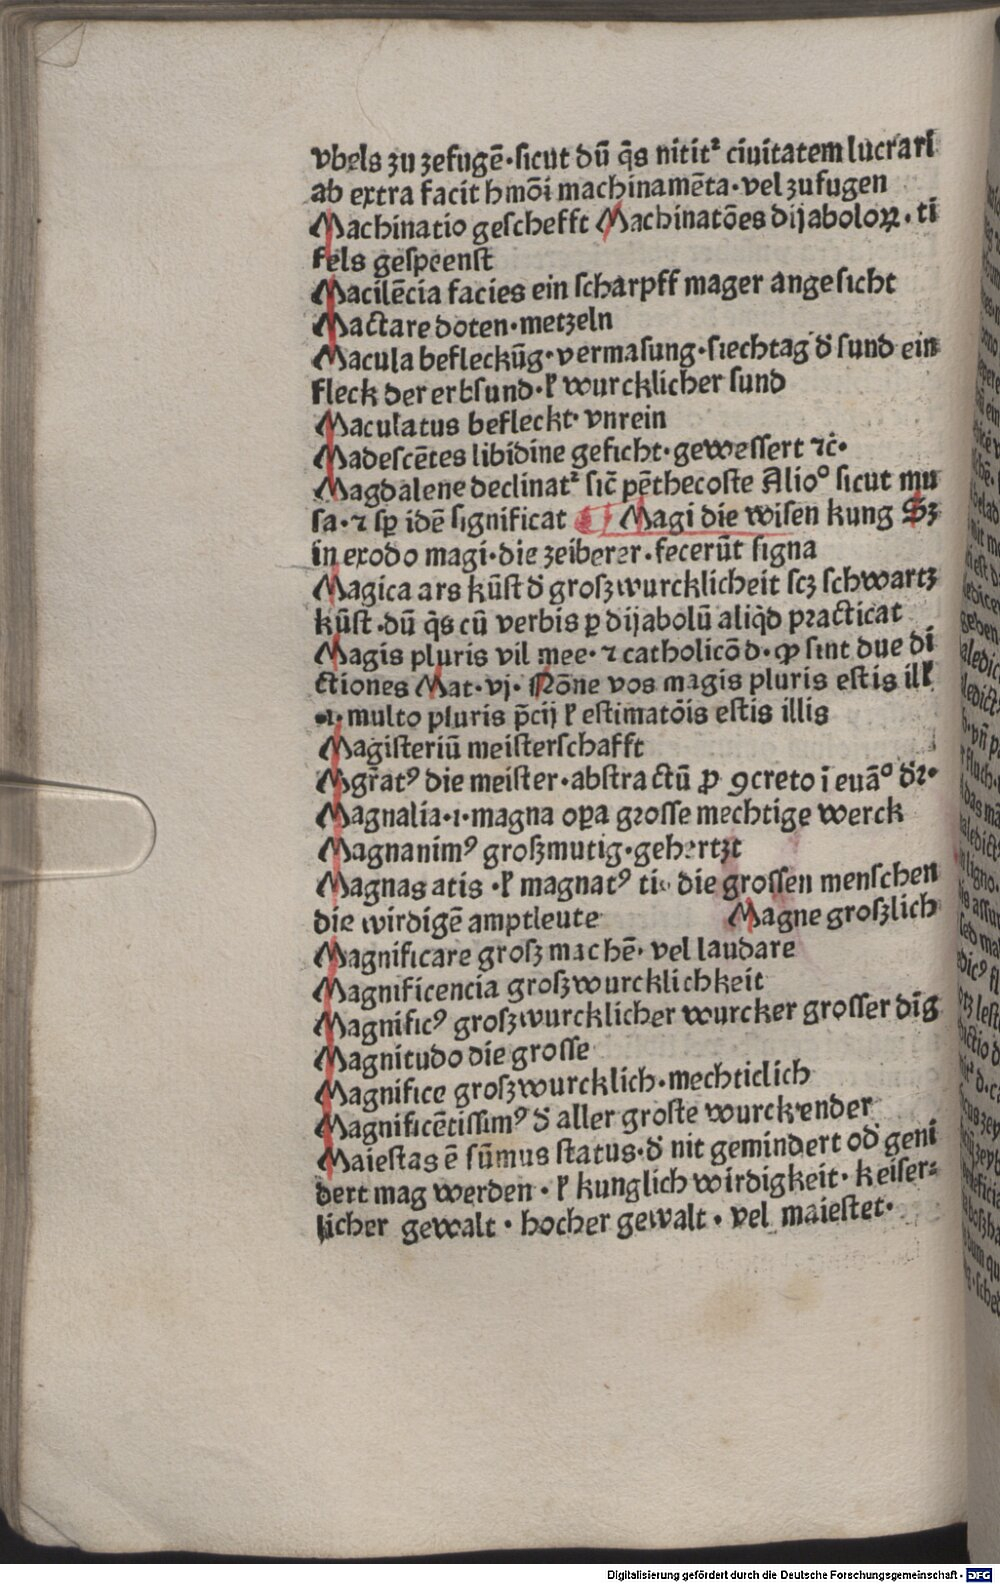 vbels zu zefugē·sicut dū q̄s nititᷣ ciuitatem lucrari
ab extra facit hmōi machinamēta·vel zufugen
Machinatio geschefft Machinatōes dijaboloꝝ·ti
fels gespeenst
Macilēcia facies ein scharpff mager angesicht
Mactare doten·metzeln
Macula befleckūg·vermasung·siechtag d̄ sund ein
fleck der erbsund·ł wurcklicher sund
Maculatus befleckt·vnrein
Madescētes libidine geficht·gewessert ⁊c̄·
Magdalene declinatᷣ sic̄ pēthecoste Alio° sicut mu
sa·⁊ sꝑ idē significat Magi die wisen kung Sz
in exodo magi·die zeiberer·fecerūt signa
Magica ars kūst d̄ groszwurcklicheit scz schwartz
kūst·dū q̄s cū verbis ꝑ dijabolū aliq̇d practicat
Magis pluris vil mee·⁊ catholicō d·ꝙ sint due di
ctiones Mat·vj· Nōne vos magis pluris estis ill
·i·multo pluris p̄cij ł estimatōis estis illis
Magisteriū meisterschafft
Mgr̄atꝰ die meister·abstractū ꝓ ꝯcreto ī euā° dr̄·
Magnalia·i·magna oꝑa grosse mechtige werck
Magnanimꝰ groszmutig·gehertzt
Magnas atis·ł magnatꝰ ti· die grossen menschen
die wirdigē amptleute Magne groszlich
Magnificare grosz machē·vel laudare
Magnificencia groszwurcklichkeit
Magnificꝰ groszwurcklicher wurcker grosser dīg
Magnitudo die grosse
Magnifice groszwurcklich·mechticlich
Magnificētissimꝰ d̄ aller groste wurckender
Maiestas ē sūmus status·d̄ nit gemindert od̄ geni
dert mag werden·ł kunglich wirdigkeit·keiser⸗
licher gewalt·hocher gewalt·vel maiestet·
Digitalisierung gefördert durch die Deutsche Forschungsgemeinschaft - DFG